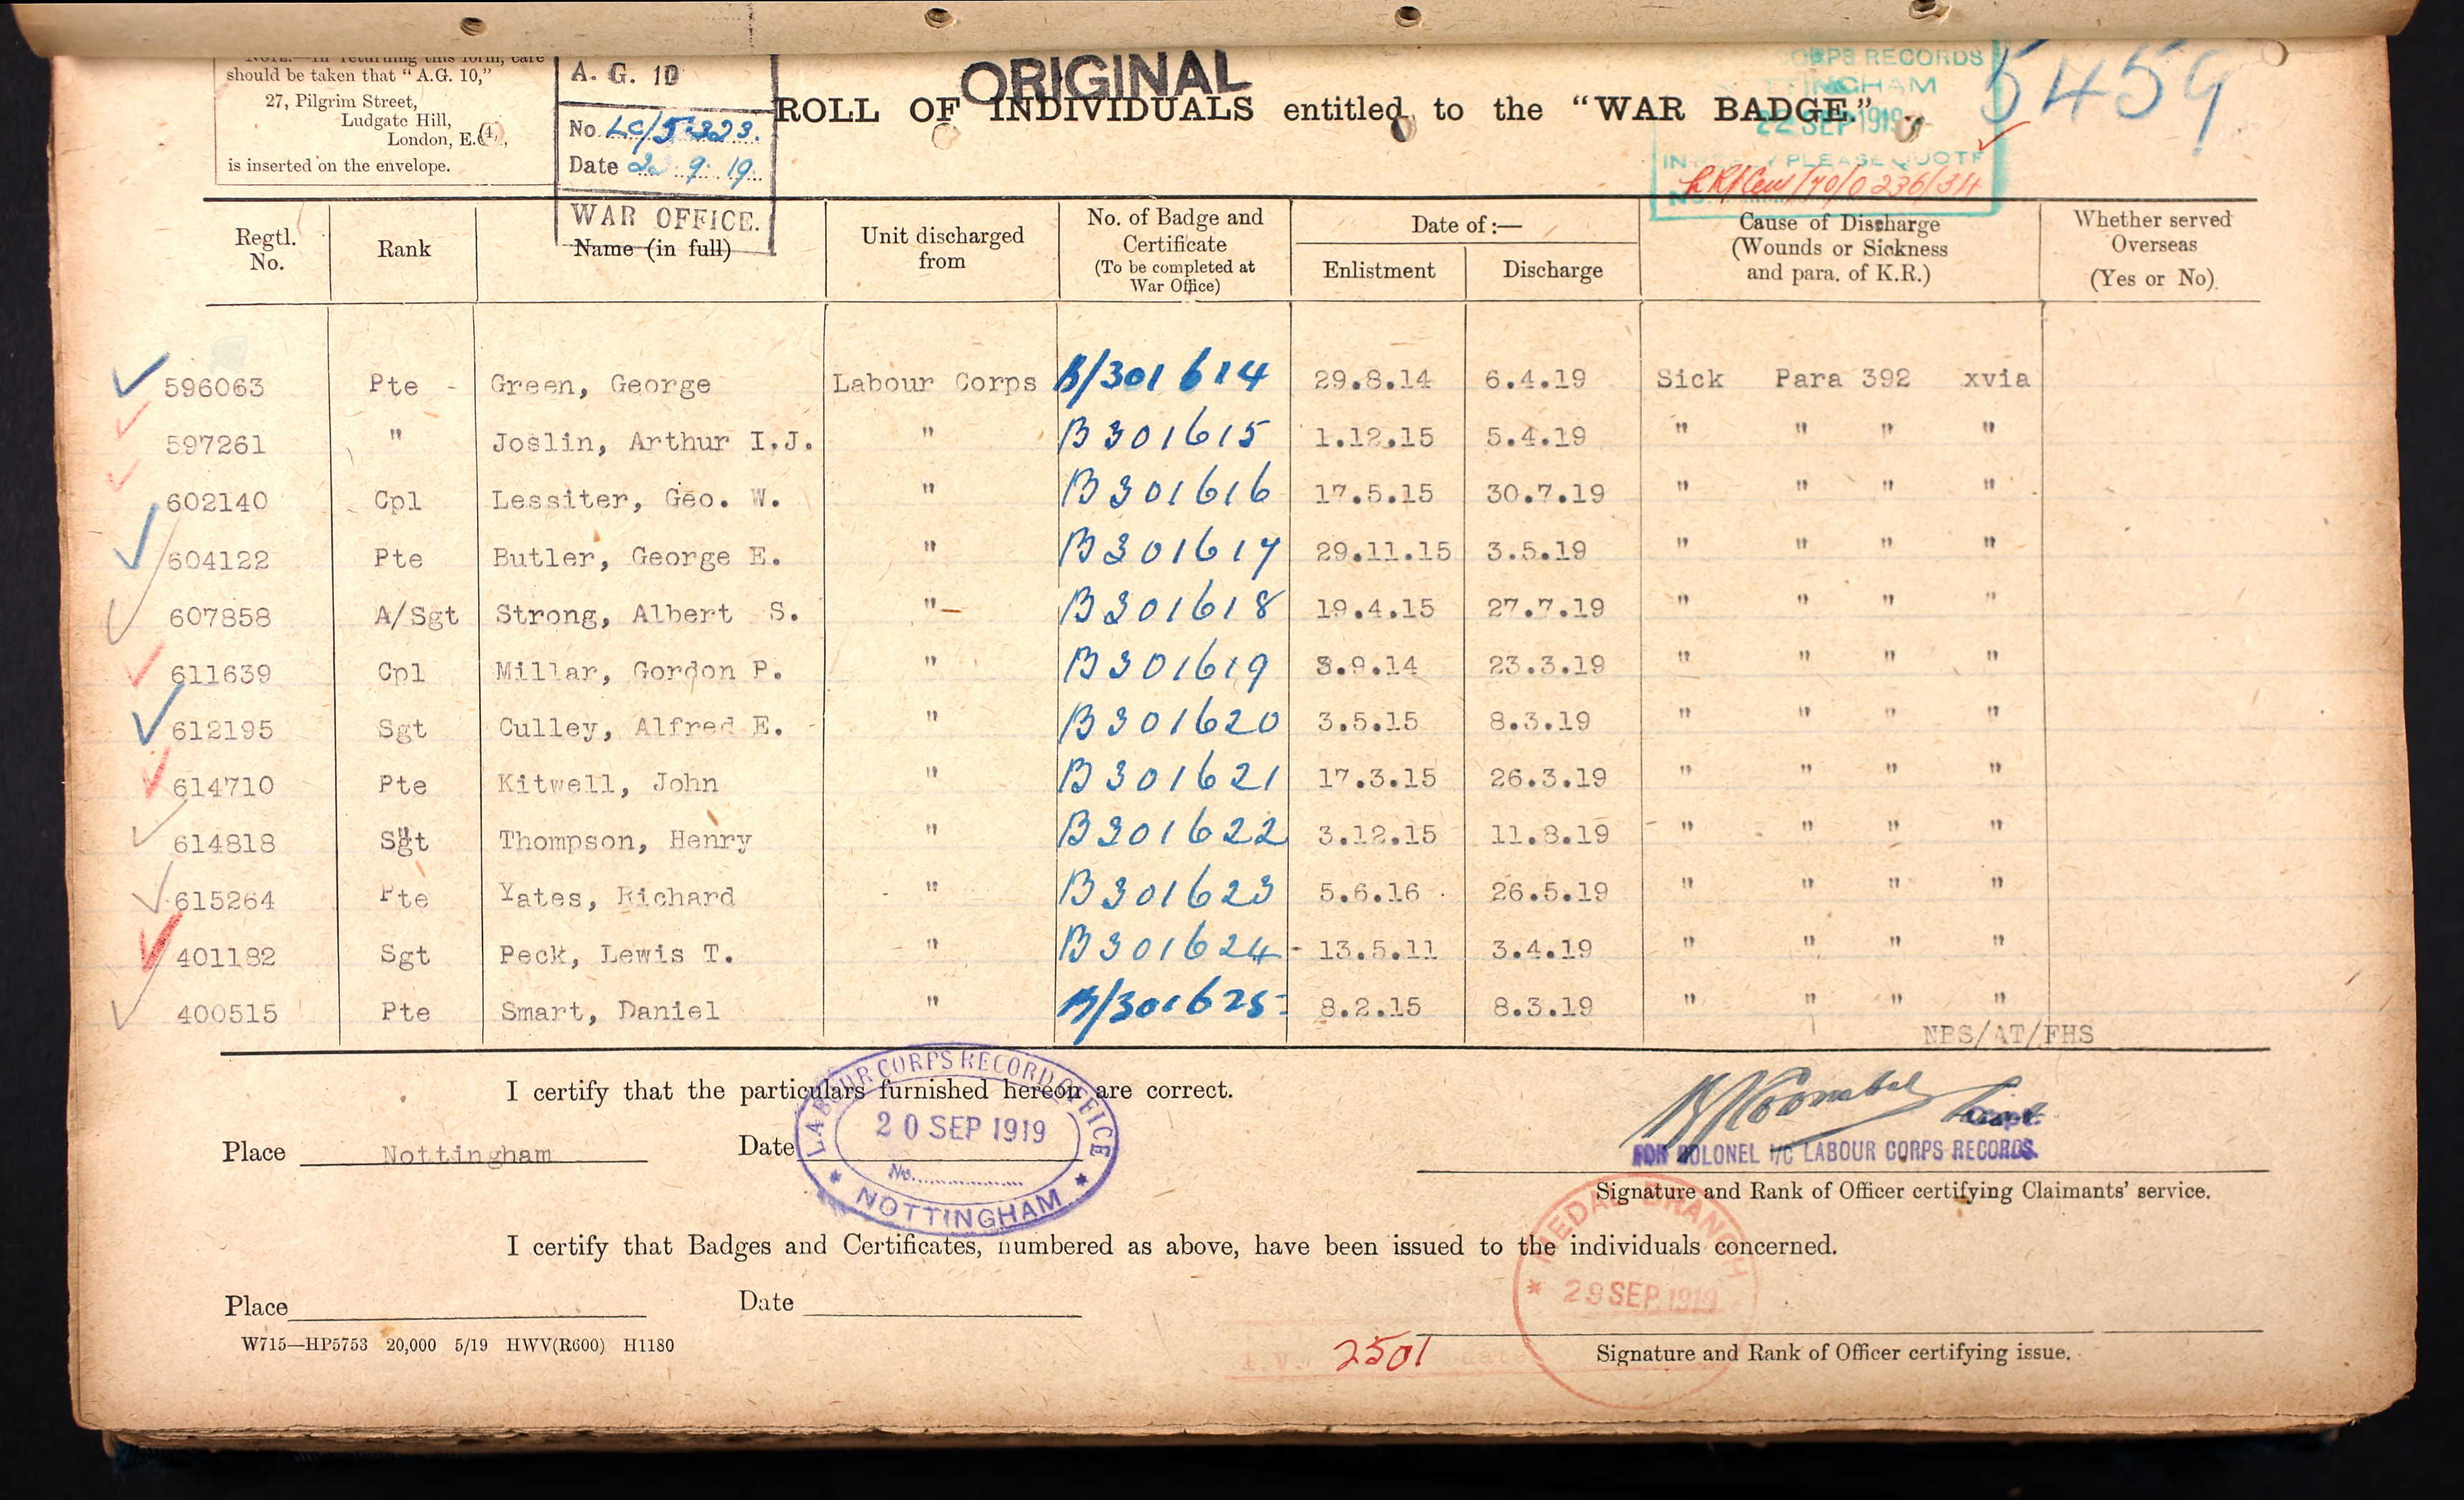 NOTE.—In returning this form, care
should be taken that "A.G. 10,"
27, Pilgrim Street,
Ludgate Hill,
London, E.C. 4,
is inserted on the envelope.
A. G. 10
No. LC/5323.
Date 22.9.19.
WAR OFFICE.
ORIGINAL
ROLL OF INDIVIDUALS entitled to the "WAR BADGE."
CORPS RECORDS
NOTTINGHAM
22 SEP 1919
PLEASE QUOTE
5459
Regtl. No.	Rank	Name (in full)	Unit discharged from	No. of Badge and Certificate (To be completed at War Office)	Date of :— Enlistment	Discharge	Cause of Discharge (Wounds or Sickness and para. of K.R.)	Whether served Overseas (Yes or No)
596063	Pte -	Green, George	Labour Corps	B/301614	29.8.14	6.4.19	Sick Para 392 xvia
597261	"	Joslin, Arthur I.J.	"	B301615	1.12.15	5.4.19	" " " "
602140	Cpl	Lessiter, Geo. W.	"	B301616	17.5.15	30.7.19	" " " "
604122	Pte	Butler, George E.	"	B301617	29.11.15	3.5.19	" " " "
607858	A/Sgt	Strong, Albert S.	"	B301618	19.4.15	27.7.19	" " " "
611639	Cpl	Millar, Gordon P.	"	B301619	3.9.14	23.3.19	" " " "
612195	Sgt	Culley, Alfred E.	"	B301620	3.5.15	8.3.19	" " " "
614710	Pte	Kitwell, John	"	B301621	17.3.15	26.3.19	" " " "
614818	Sgt	Thompson, Henry	"	B301622	3.12.15	11.8.19	" " " "
615264	Pte	Yates, Richard	"	B301623	5.6.16	26.5.19	" " " "
401182	Sgt	Peck, Lewis T.	"	B301624	13.5.11	3.4.19	" " " "
400515	Pte	Smart, Daniel	"	B/301625	8.2.15	8.3.19	" " " "
NBS/AT/FHS
I certify that the particulars furnished hereon are correct.
LABOUR CORPS RECORD OFFICE
20 SEP 1919
No.
* NOTTINGHAM *
Place Nottingham Date
Capt.
FOR COLONEL I/C LABOUR CORPS RECORDS.
Signature and Rank of Officer certifying Claimants' service.
I certify that Badges and Certificates, numbered as above, have been issued to the individuals concerned.
* MEDAL BRANCH
29 SEP. 1919
Place Date
W715—HP5753 20,000 5/19 HWV(R600) H1180
2501
Signature and Rank of Officer certifying issue.